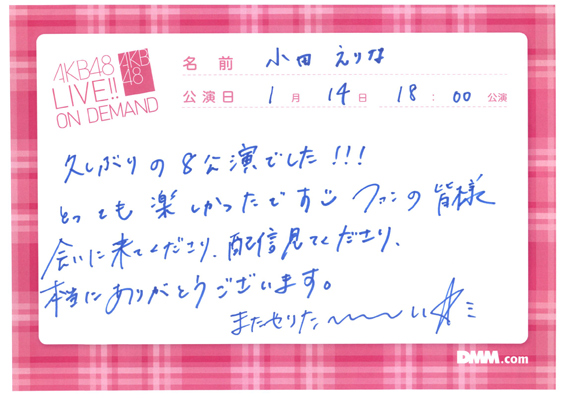 AKB48
LIVE!!
ON DEMAND
AKB
48
名前 小田 えりな
公演日 1月 14日 18:00 公演
久しぶりの8公演でした!!!
とっても楽しかったです ファンの皆様
会いに来てくださり、配信見てくださり、
本当にありがとうございます。
またやりた〜〜〜い☆ミ
DMM.com